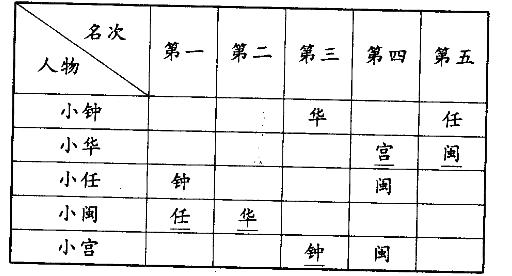 名次
人物 第一 第二 第三 第四 第五
小钟 华 任
小华 宫 闽
小任 钟 闽
小闽 任 华
小宫 钟 闽